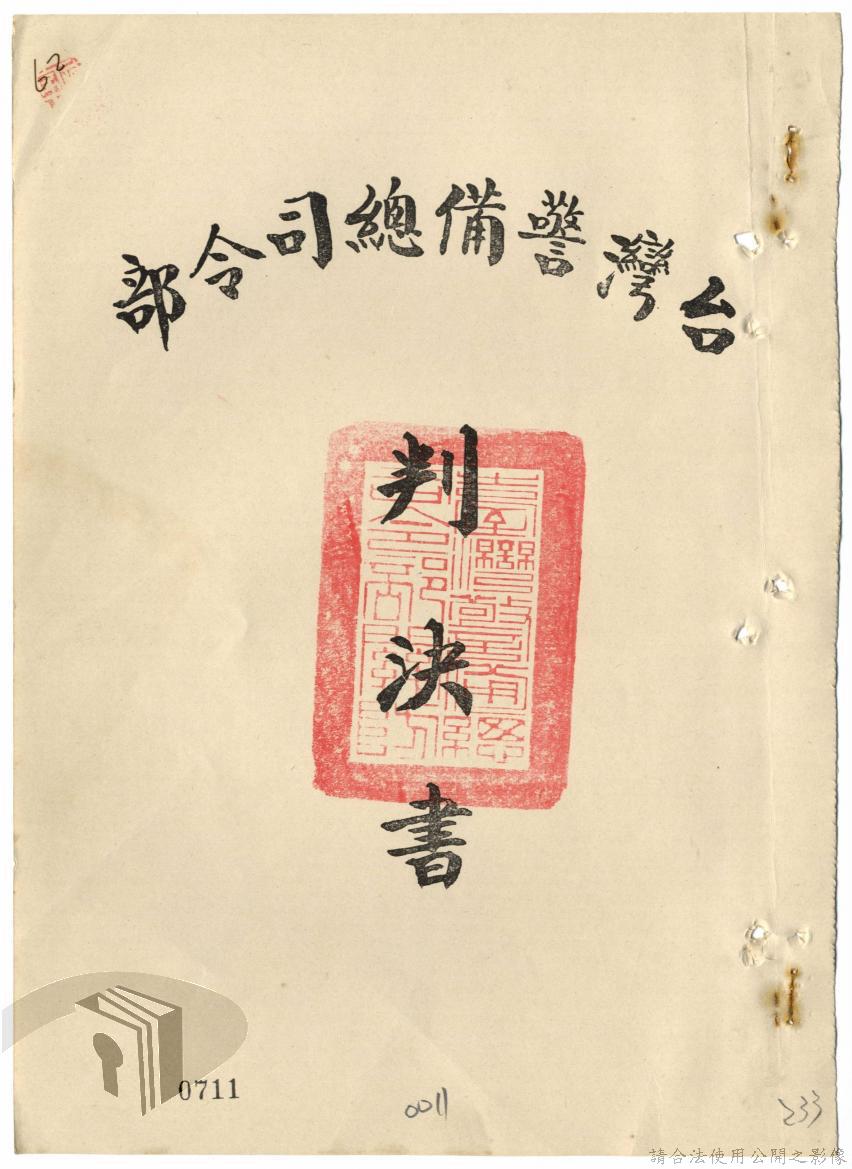 62
台灣警備總司令部
判
決
書
0711
0011
233
請合法使用公開之影像